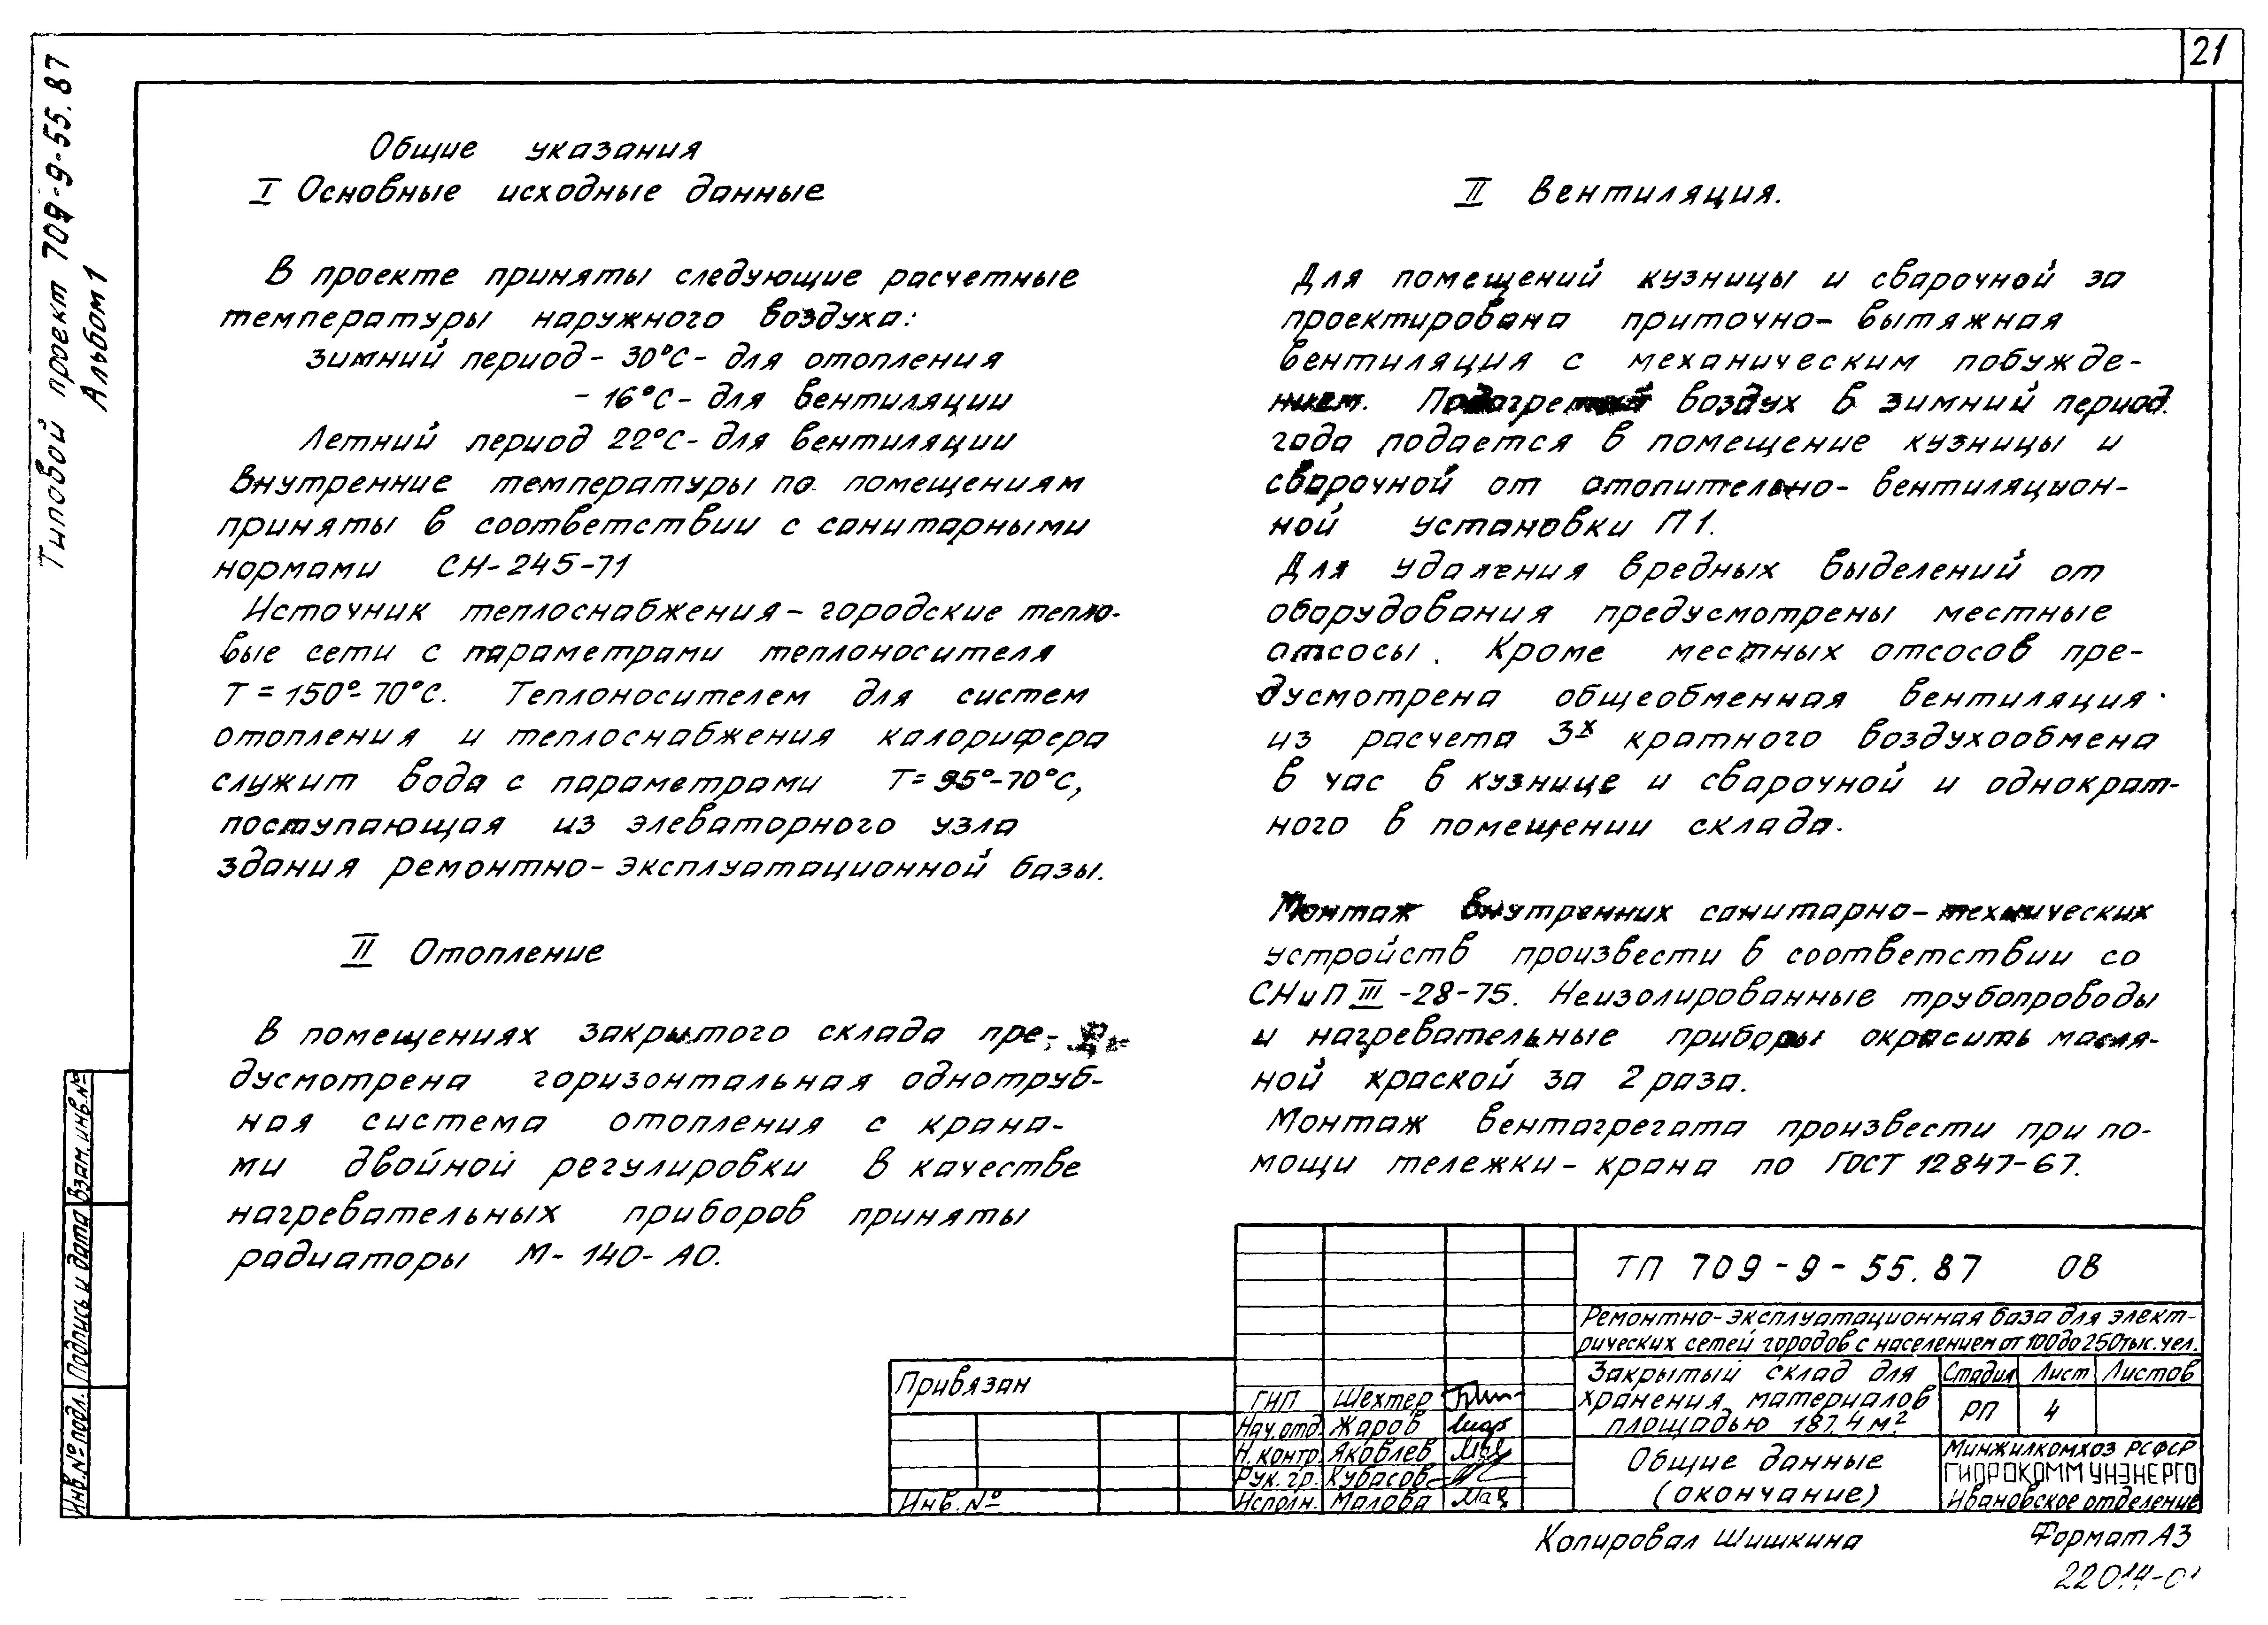 21
Типовой проект 709-9-55.87
Альбом 1
Общие указания
I Основные исходные данные
В проекте приняты следующие расчетные
температуры наружного воздуха:
зимний период - 30°С - для отопления
- 16°С - для вентиляции
Летний период 22°С - для вентиляции
Внутренние температуры по помещениям
приняты в соответствии с санитарными
нормами СН-245-71
Источник теплоснабжения - городские тепло-
вые сети с параметрами теплоносителя
Т = 150°-70°С. Теплоносителем для систем
отопления и теплоснабжения калорифера
служит вода с параметрами Т= 95°-70°С,
поступающая из элеваторного узла
здания ремонтно-эксплуатационной базы.
II Отопление
В помещениях закрытого склада пре-
дусмотрена горизонтальная однотруб-
ная система отопления с крана-
ми двойной регулировки В качестве
нагревательных приборов приняты
радиаторы М-140-АО.
II Вентиляция.
Для помещений кузницы и сварочной за
проектирована приточно-вытяжная
вентиляция с механическим побужде-
нием. Подогретый воздух в зимний период
года подается в помещение кузницы и
сварочной от отопительно-вентиляцион-
ной установки П1.
Для удаления вредных выделений от
оборудования предусмотрены местные
отсосы. Кроме местных отсосов пре-
дусмотрена общеобменная вентиляция
из расчета 3х кратного воздухообмена
в час в кузнице и сварочной и однократ-
ного в помещении склада.
Монтаж внутренних санитарно-технических
устройств произвести в соответствии со
СНиП III-28-75. Неизолированные трубопроводы
и нагревательные приборы окрасить масля-
ной краской за 2 раза.
Монтаж вентагрегата произвести при по-
мощи тележки-крана по ГОСТ 12847-67.
Взам. инв. №
Подпись и дата
Инв. № подл.
Привязан
Инв. №
ГИП Шехтер
Нач. отд. Жаров
Н. контр. Яковлев
Рук. гр. Кубасов
Исполн. Малова
ТП 709-9-55.87 ОВ
Ремонтно-эксплуатационная база для элект-
рических сетей городов с населением от 100 до 250 тыс. чел.
Закрытый склад для
хранения материалов
площадью 187,4 м²
Стадия Лист Листов
РП 4
Общие данные
(окончание)
Минжилкомхоз РСФСР
ГИПРОКОММУНЭНЕРГО
Ивановское отделение
Копировал Шишкина
Формат А3
22014-01